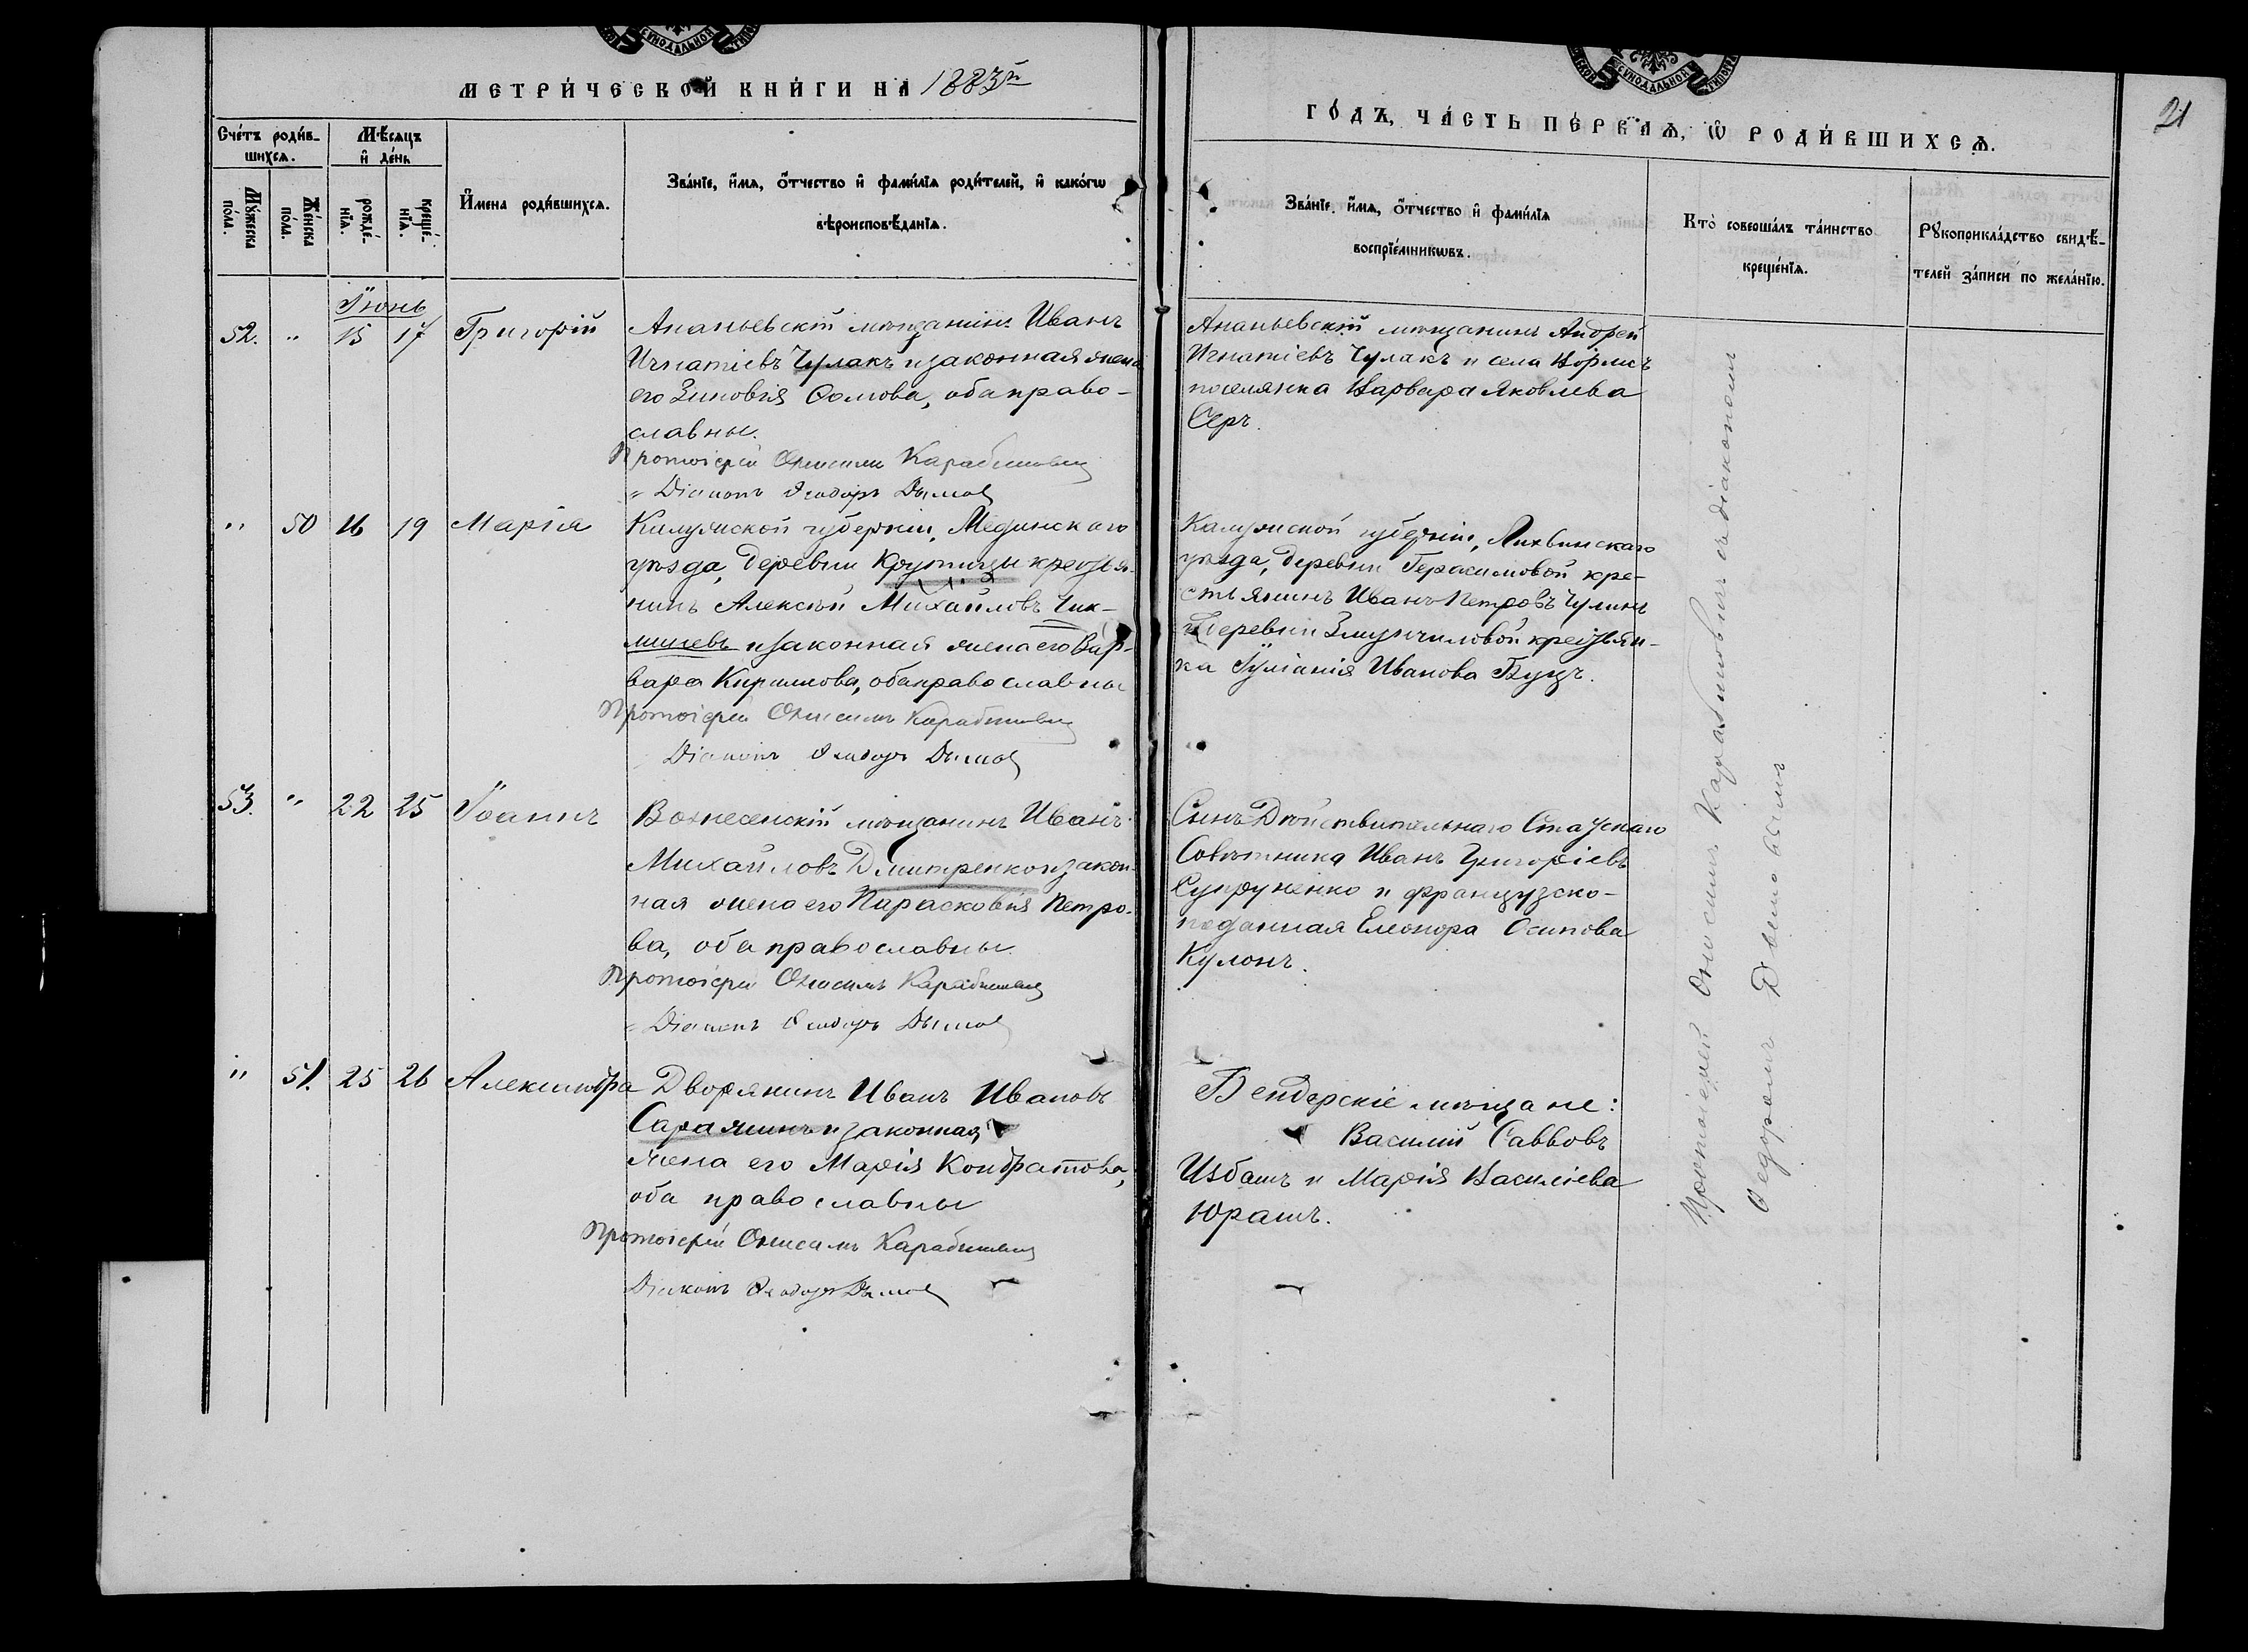 МЕТРИ́ЧЕСКОЙ КНИ́ГИ НА 1883й
ГО́ДЪ, ЧА́СТЬ ПЕ́РВАѦ, Ѡ РОДИ́ВШИХСѦ.
21
Сче́тъ роди́в-
шихсѧ.
Мꙋ́жеска
по́ла.
Же́нска
по́ла.
Мѣ́сѧцъ
и҆ де́нь
рожде́-
нїѧ.
креще́-
нїѧ.
И҆́мена роди́вшихсѧ.
Зва́нїе, и҆́мѧ, ѻ҆́тчество и҆ фами́лїѧ роди́телей, и҆ како́гѡ
вѣроисповѣ́данїѧ.
Зва́нїе, и҆́мѧ, ѻ҆́тчество и҆ фами́лїѧ
воспрїе́мникѡвъ.
Кто̀ соверша́лъ та́инство
креще́нїѧ.
Рꙋкоприкла́дство свидѣ́-
телей за́писи по жела́нїю.
Іюнь
52. " 15 17 Григорій
Ананьевскій мѣщанинъ Иванъ
Игнатіевъ Чулакъ и законная жена
его Зиновія Ѳомова, оба право-
славны.
Протоіерей Онисимъ Карабиневичъ
Діаконъ Ѳеодоръ Дымов
Ананьевскій мѣщанинъ Андрей
Игнатіевъ Чулакъ и села
поселянка Варвара Яковлева
Серъ.
" 50 16 19 Марія
Калужской губерніи, Медынскаго
уѣзда, деревни Крутицы крестья-
нинъ Алексѣй Михайловъ Чик-
и законная жена его Вар-
вара Кирилова, оба православны
Протоіерей Онисимъ Карабиневичъ
Діаконъ Ѳеодоръ Дымов
Калужской губерніи, Лихвинскаго
уѣзда, деревни Герасимовой кре-
стьянинъ Иванъ Петровъ Чулинъ
и деревни крестьян-
ка Іуліанія Иванова Буцъ.
53. " 22 25 Іоаннъ
Вознесенскій мѣщанинъ Иванъ
Михайловъ Дмитренко и закон-
ная жена его Парасковія Петро-
ва, оба православны.
Протоіерей Онисимъ Карабиневичъ
Діаконъ Ѳеодоръ Дымов
Сынъ Дѣйствительнаго Статскаго
Совѣтника Иванъ Григоріевъ
Супруненко и французско-
поданная Елеонора Осипова
Кулонъ.
" 51. 25 26 Александра
Дворянинъ Иванъ Ивановъ
и законная
жена его Марія Кондратова,
оба православны
Протоіерей Онисимъ Карабиневичъ
Діаконъ Ѳеодоръ Дымов
Бендерскіе мѣщане:
Василій Саввовъ
Избашъ и Марія Василіева
Юрашъ.
Протоіерей Онисимъ Карабиневичъ съ діакономъ
Ѳедоромъ Дымовымъ